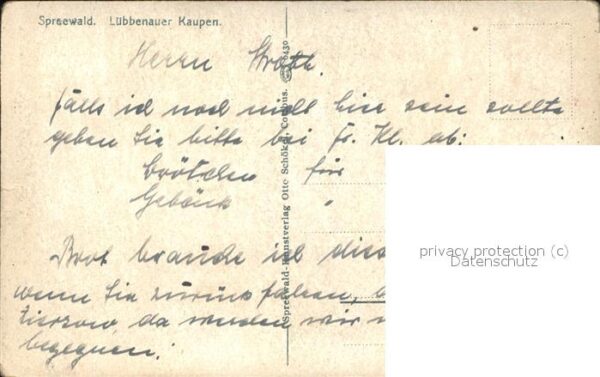 Spreewald. Lübbenauer Kaupen.
Herrn
Falls ich noch nicht hier sein sollte
geben Sie bitte bei Fr. Kl. ab:
Brötchen für
Gebäck "
Brot brauche ich dies
wenn Sie zurück fahren,
da wir
begegnen!
Spreewald-Kunstverlag Otte Schökel, Cottbus.
privacy protection (c)
Datenschutz